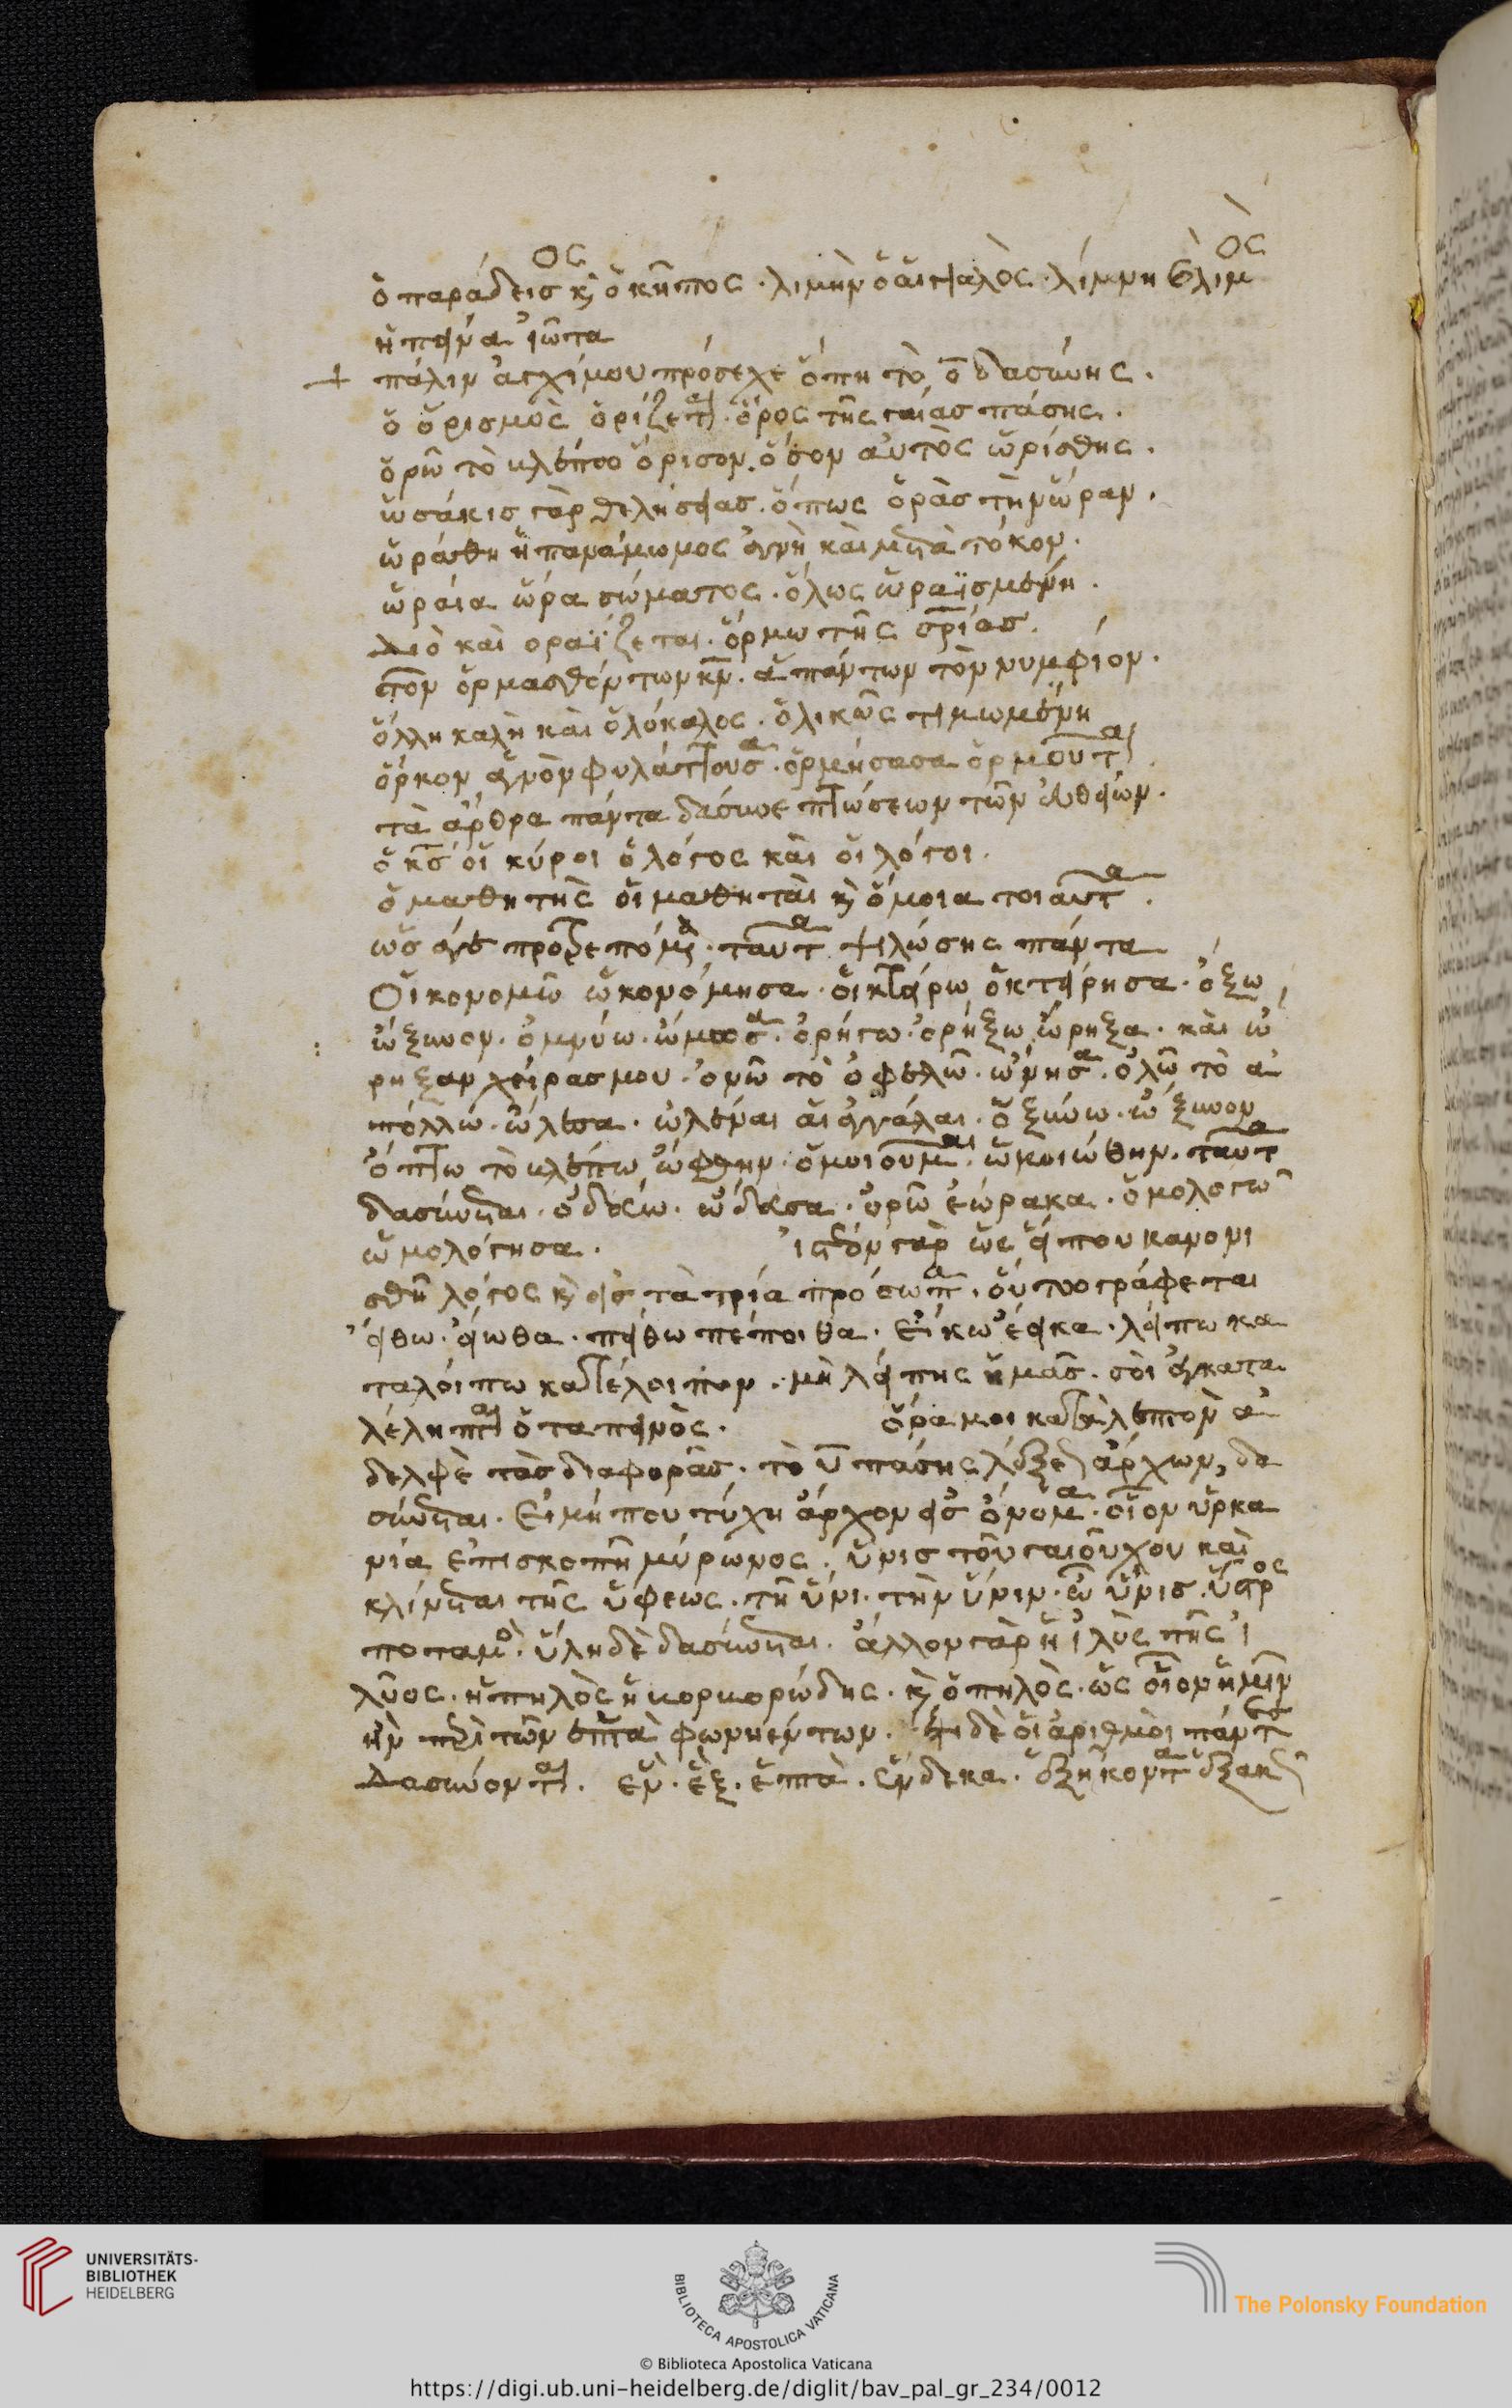 ὁ παράδεισος κ̀ ὁ κῆπος · λιμὴν ὁ αἰγιαλὸς · λίμνη
ἡ πεῖνα ἰῶτα
πάλιν ἀρχίμου πρόσεχε ὅπη τὸ ο̄ δασύνης .
ὁ ὁρισμὸς ὁρίζεται · ὅρος τῆς γαίας πάσης .
ὁρῶ τὸ βλέπω ὅρισον · ὅσον αὐτὸς ὡρίσθης .
ὡσάκις γὰρ θελήσειας · ὅπως ὁρᾶς τὴν ὥραν .
ὡράθη ἡ πανάμωμος ἁγνὴ καὶ μετὰ τόκον .
ὡραία ὥρα σώματος · ὅλως ὡραϊσμένη .
διὸ καὶ οραΐζεται · ὅρμω τῆς σρίας .
τὸν νυμφίον .
ὅλλη καλὴ καὶ ὁλόκαλος · ὁλικῶς τιμωμένη
ὅρκον ἁγνὸν φυλάττουσα · ὁρμήσασα ὁρμοῦται .
τὰ ἄρθρα πάντα δάσυνε πτώσεων τῶν εὐθειῶν .
ὁ κς̄ οἱ κύριοι ὁ λόγος καὶ οἱ λόγοι .
ὁ μαθητὴς οἱ μαθηταὶ κ̀ ὅμοια τοιαῦτα .
πάντα
Οἰκονομῶ ᾠκονόμησα · οἰκτείρω ὀκτείρησα · ὄξω
ὤξυνον · ὀμνύω · ὤμοσα · ὀρήγω · ὀρήξω ὤρηξα · καὶ ὠ
ρηξαν χείρας μου · ὀνῶ τὸ ὀφελῶ · ὤνησα · ὀλῶ τὸ ἀ
πόλλω · ὤλεσα · ὠλέναι αἱ ἀγκάλαι · ὀξύνω · ὤξυνον
ὄπτω τὸ βλέπω ὤφθην · ὁμοιοῦμαι · ὡμοιώθην · ταῦτα
δασύνεται · ὁδεύω · ὥδευσα · ὁρῶ ἑώρακα · ὁμολογῶ
ὡμολόγησα . ἰστέον γὰρ ὡς εἴπου κανονι
σθῆ λόγος κ̀ εἰς τὰ τρία πρόσωπα · οὕτω γράφεται
εἴθω · εἴωθα · πείθω πέποιθα · Εἴκω ἔεικα · λείπω κα
ταλοίπω κατέλοιπον · μὴ λείπης ἡμᾶς · σοὶ ἐγκατα
λέλειπται ὁ ταπεινὸς . ὅρα μοι κατάλεπτον ἀ
δελφὲ τὰς διαφορὰς · τὸ ῡ πάσης λέξεως ἄρχων, δα
σύνεται · Εἰ μή που τύχη ἄρχον εἰς ὄνομα · οἷον ὑρκα
νία ἐπισκοπὴ μύρωνος · ὕνις τοῦ γαιούχου καὶ
κλίνεται τῆς ὕφεως · τῆ ὕνι · τὴν ὕνιν · ὦ ὕνις .
ποταμὸς · ὕλη δὲ δασύνεται · ἄλλον γὰρ ἡ ἰλὺς τῆς ἰ
λύος · ἡ πηλὸς ἡ βορβορώδης · κ̀ ὁ πηλὸς · ὡς οἷον ἡμῖν
ἦν περὶ τῶν ἑπτὰ φωνηέντων · δὲ οἱ ἀριθμοὶ πάντες
δασύνονται . ἓν · ἓξ · ἑπτὰ · ἕνδεκα · ἑξήκοντα
UNIVERSITÄTS-
BIBLIOTHEK
HEIDELBERG
BIBLIOTECA APOSTOLICA VATICANA
The Polonsky Foundation
© Biblioteca Apostolica Vaticana
https://digi.ub.uni-heidelberg.de/diglit/bav_pal_gr_234/0012